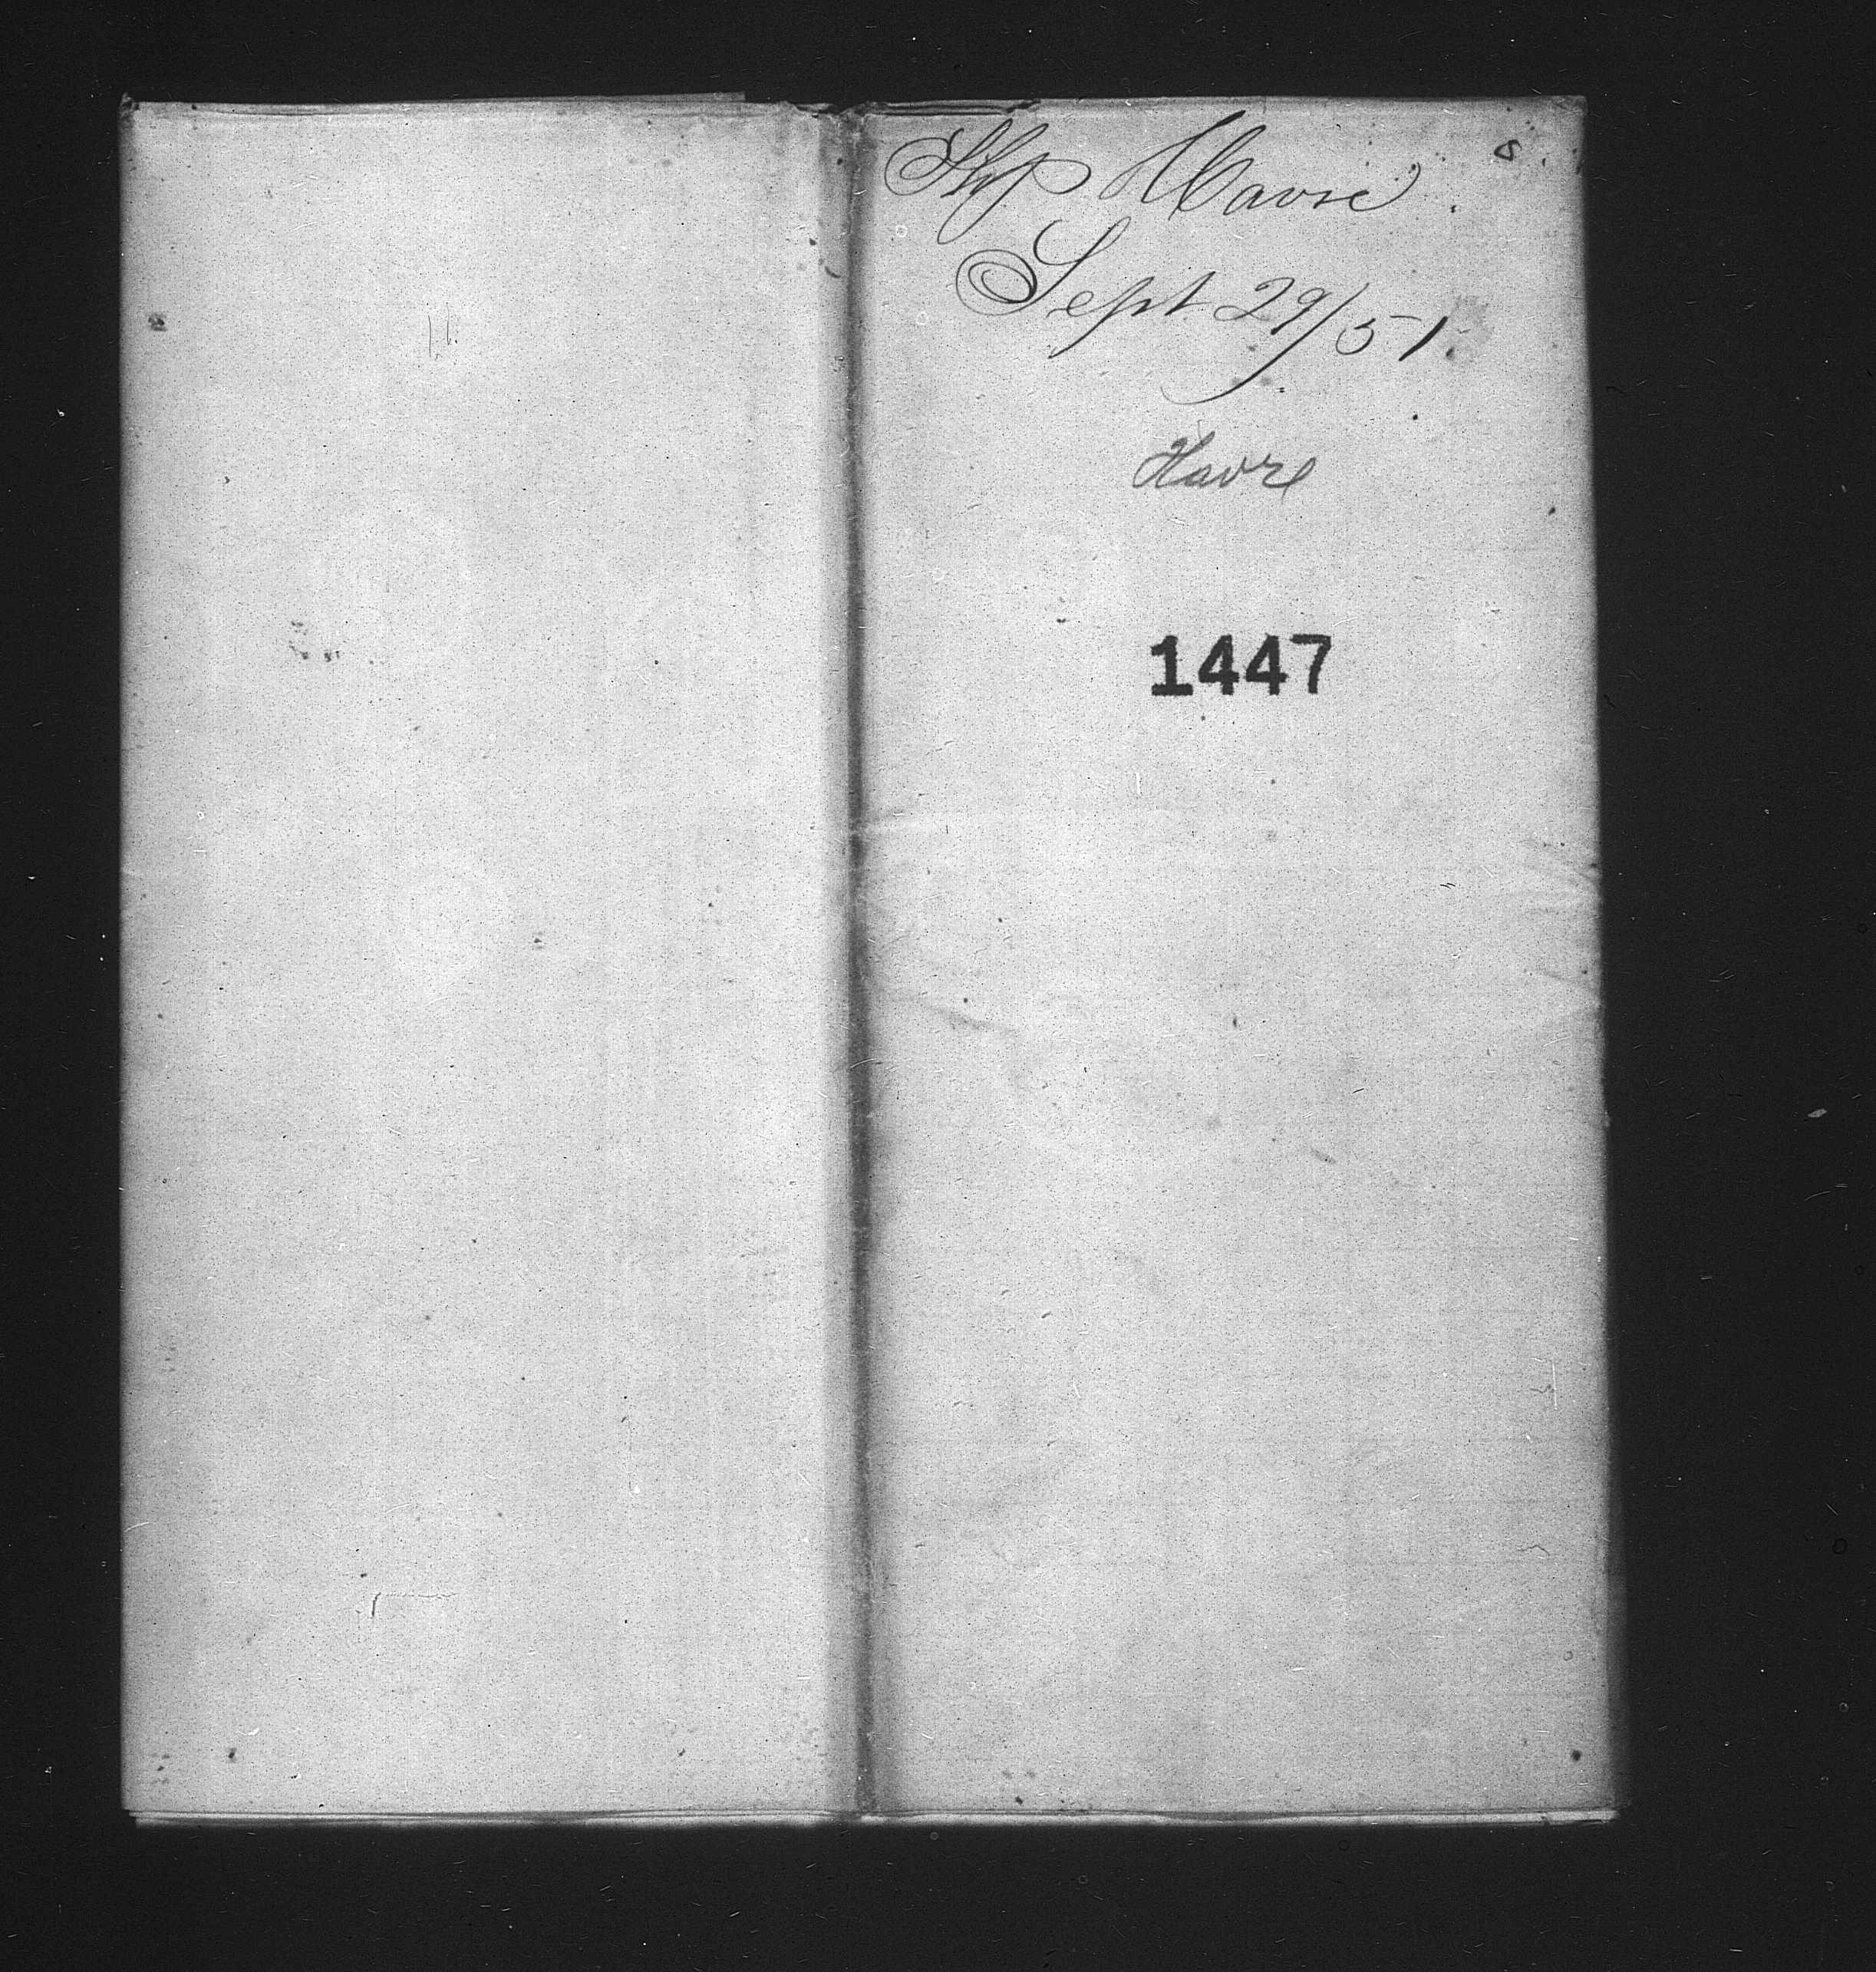 Ship Havre
Sept 29/51
Havre
1447